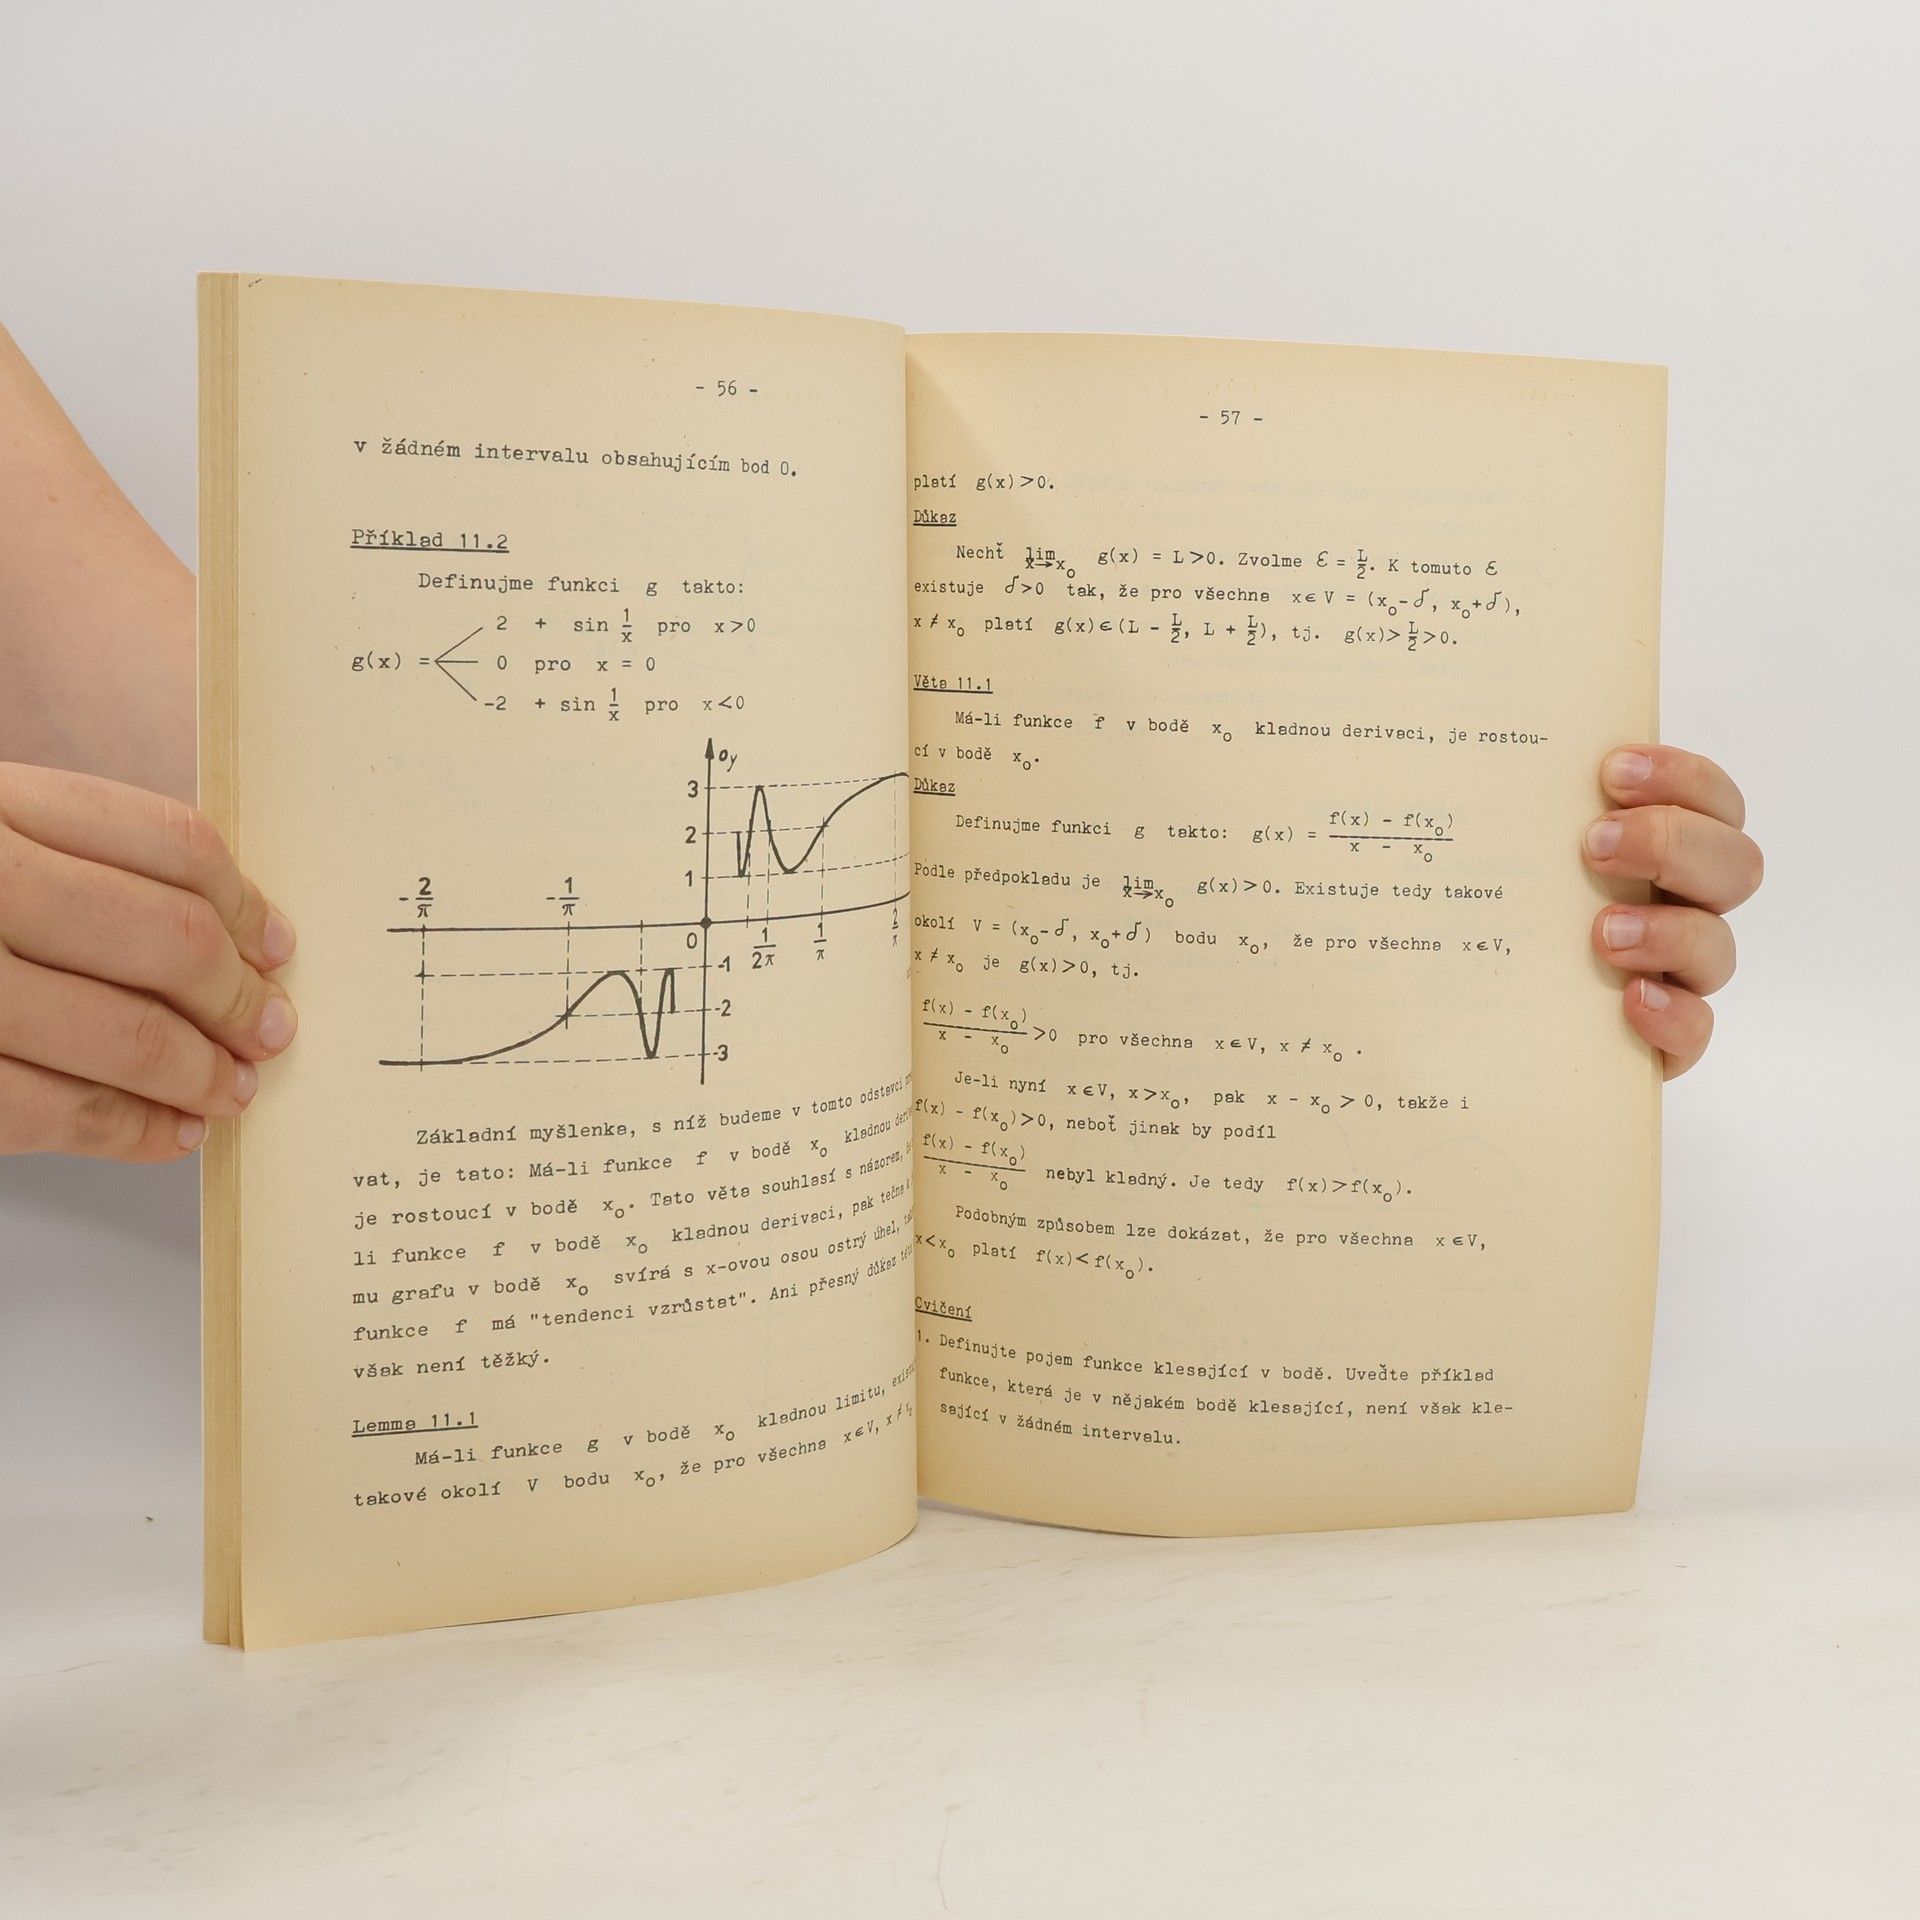 - 56 -
v žádném intervalu obsahujícím bod 0.
Příklad 11.2
Definujme funkci g takto:
2 + sin 1/x pro x>0
g(x) = 0 pro x = 0
-2 + sin 1/x pro x<0
oy
3
2
1
-2/π -1/π
0 1/2π 1/π 2/π
-1
-2
-3
Základní myšlenka, s níž budeme v tomto odstavci
vat, je tato: Má-li funkce f v bodě x₀ kladnou
je rostoucí v bodě x₀. Tato věta souhlasí s názorem,
li funkce f v bodě x₀ kladnou derivaci, pak tečna k
mu grafu v bodě x₀ svírá s x-ovou osou ostrý úhel,
funkce f má "tendenci vzrůstat". Ani přesný důkaz
však není těžký.
Lemma 11.1
Má-li funkce g v bodě x₀ kladnou limitu,
takové okolí V bodu x₀, že pro všechna x∈V, x ≠ x₀
- 57 -
platí g(x)>0.
Důkaz
Nechť lim x→x₀ g(x) = L>0. Zvolme ε = L/2. K tomuto ε
existuje δ>0 tak, že pro všechna x∈V = (x₀-δ, x₀+δ),
x ≠ x₀ platí g(x)∈(L - L/2, L + L/2), tj. g(x)>L/2>0.
Věta 11.1
Má-li funkce f v bodě x₀ kladnou derivaci, je rostou-
cí v bodě x₀.
Důkaz
Definujme funkci g takto: g(x) = f(x) - f(x₀) / x - x₀
Podle předpokladu je lim x→x₀ g(x)>0. Existuje tedy takové
okolí V = (x₀-δ, x₀+δ) bodu x₀, že pro všechna x∈V,
x ≠ x₀ je g(x)>0, tj.
f(x) - f(x₀) / x - x₀ >0 pro všechna x∈V, x ≠ x₀ .
Je-li nyní x∈V, x>x₀, pak x - x₀ > 0, takže i
f(x) - f(x₀)>0, neboť jinak by podíl
f(x) - f(x₀) / x - x₀ nebyl kladný. Je tedy f(x)>f(x₀).
Podobným způsobem lze dokázat, že pro všechna x∈V,
x<x₀ platí f(x)<f(x₀).
Cvičení
1. Definujte pojem funkce klesající v bodě. Uveďte příklad
funkce, která je v nějakém bodě klesající, není však kle-
sající v žádném intervalu.